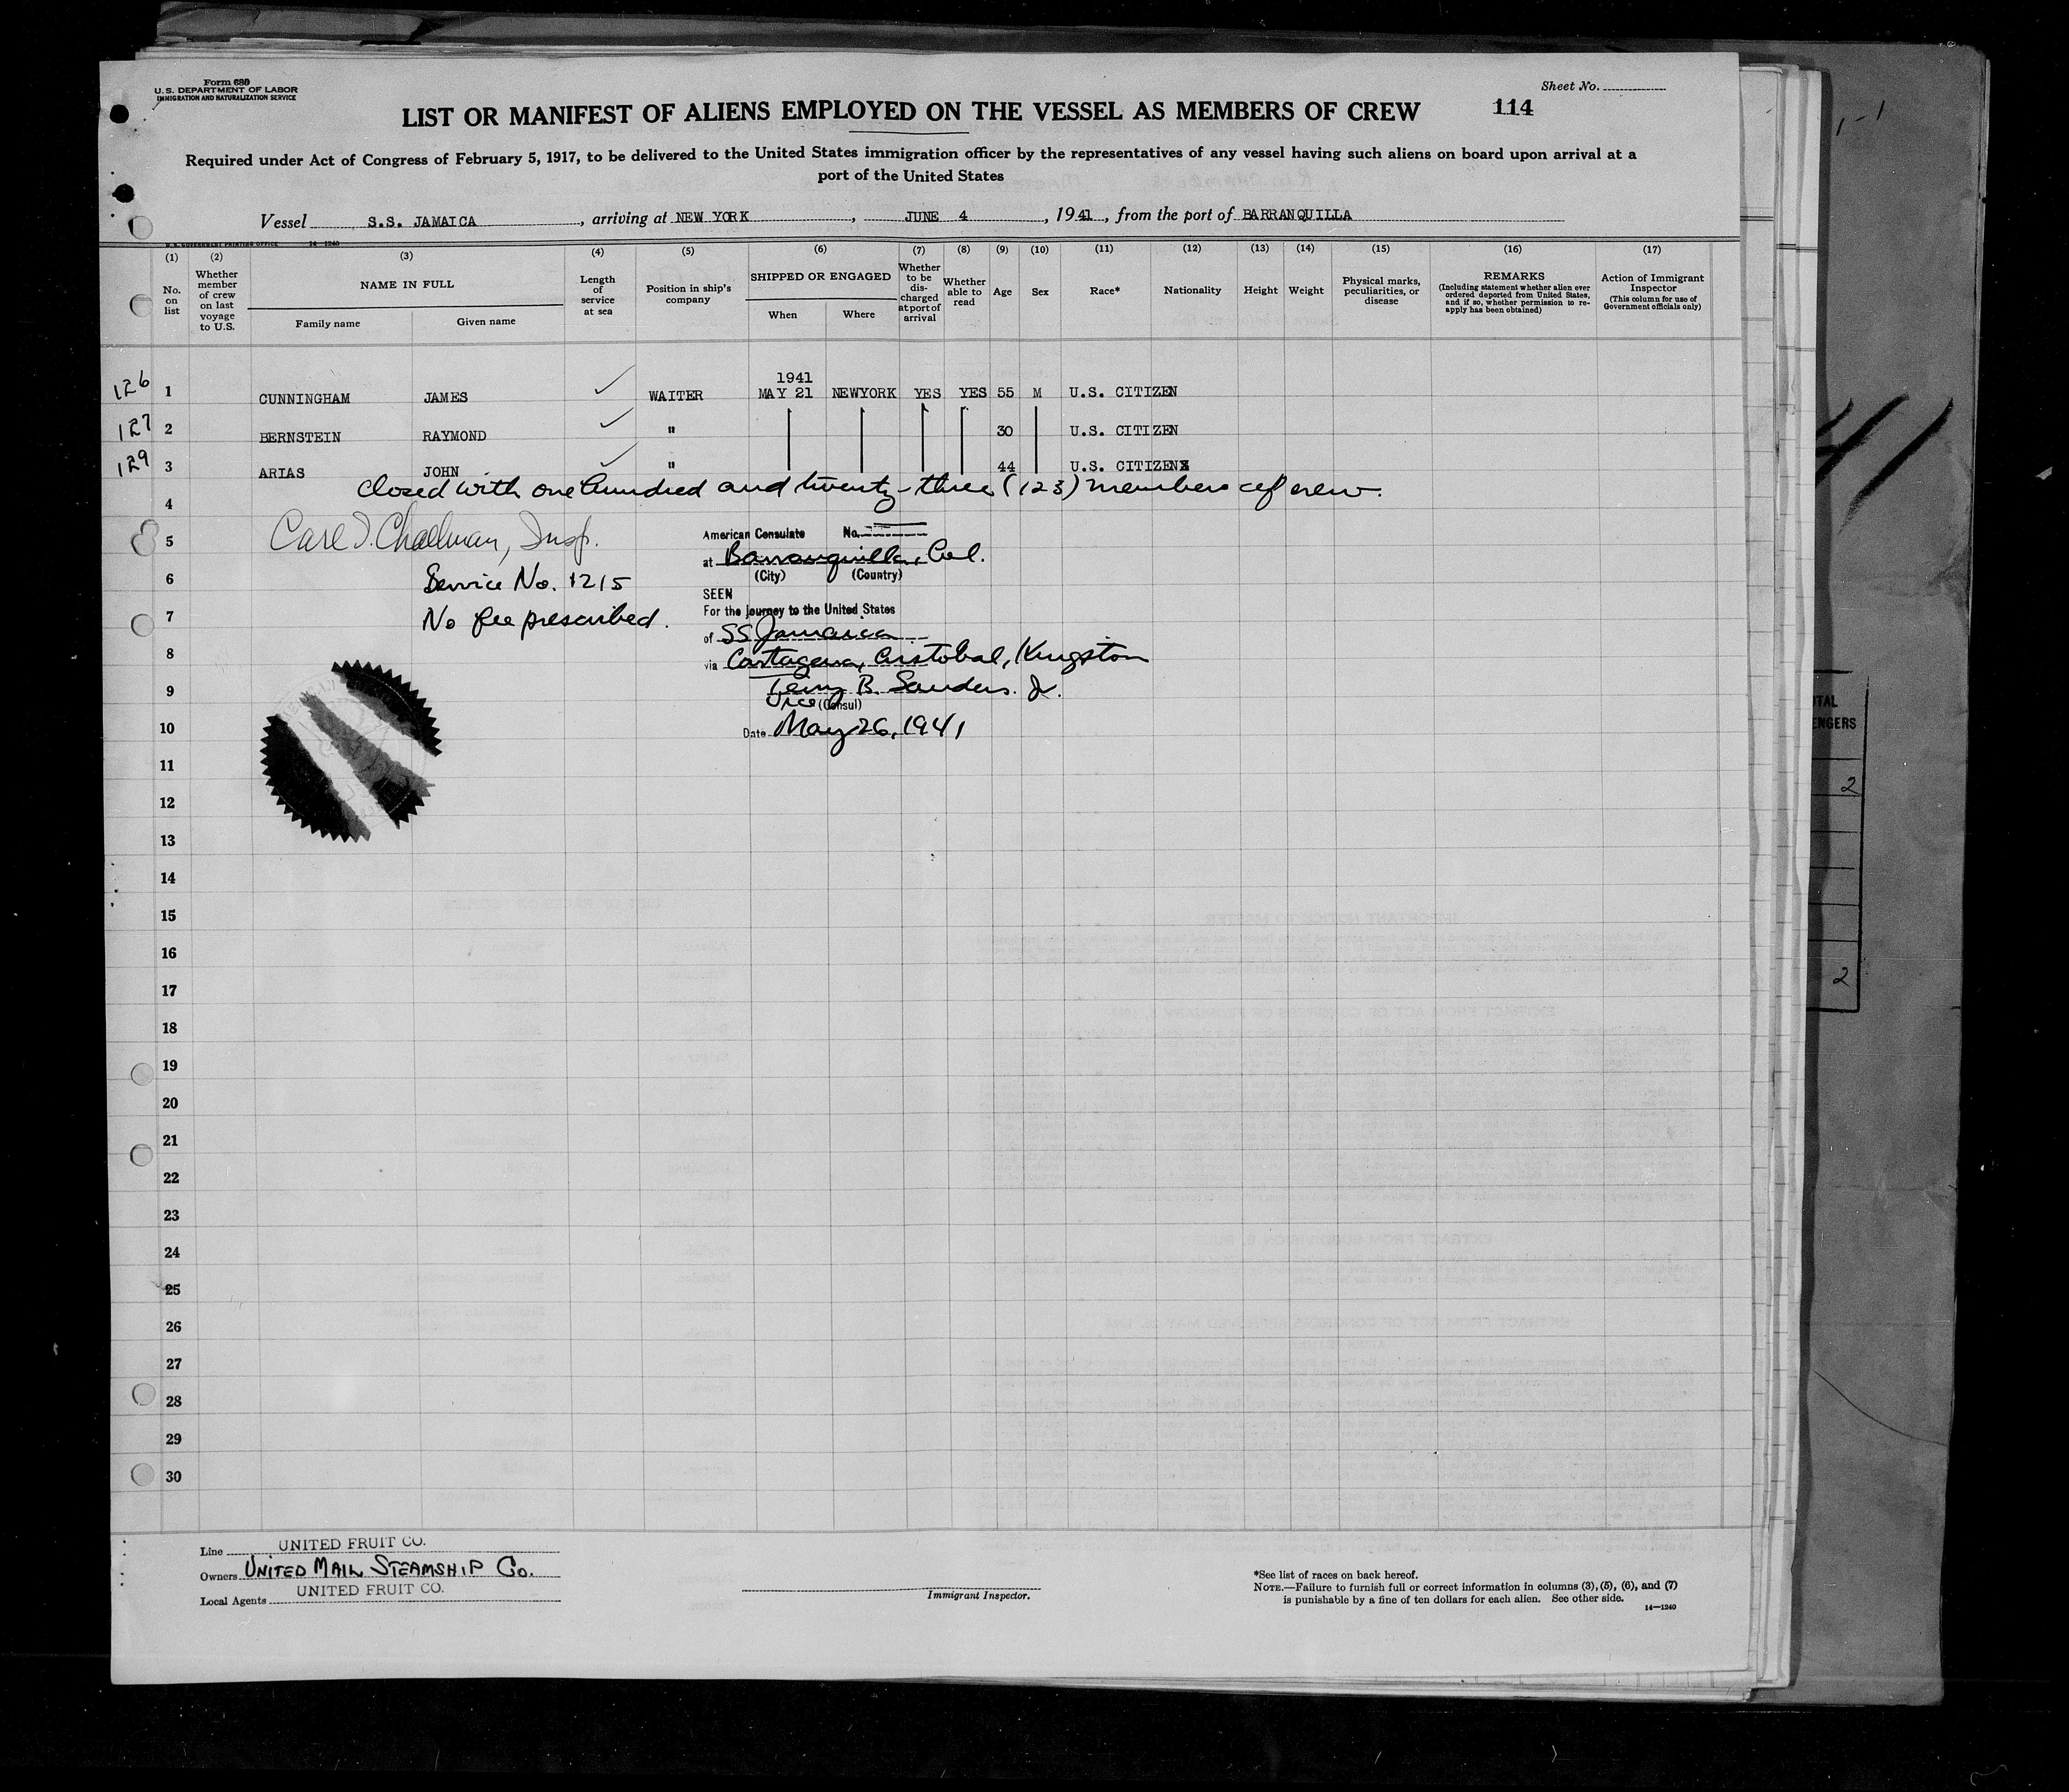 Form 680
U.S. DEPARTMENT OF LABOR
IMMIGRATION AND NATURALIZATION SERVICE
Sheet No.
LIST OR MANIFEST OF ALIENS EMPLOYED ON THE VESSEL AS MEMBERS OF CREW
114
Required under Act of Congress of February 5, 1917, to be delivered to the United States immigration officer by the representatives of any vessel having such aliens on board upon arrival at a
port of the United States
Vessel S.S. JAMAICA, arriving at NEW YORK, JUNE 4, 1941, from the port of BARRANQUILLA
U.S. GOVERNMENT PRINTING OFFICE 14—1240
(1) (2) (3) (4) (5) (6) (7) (8) (9) (10) (11) (12) (13) (14) (15) (16) (17)
No. on list
Whether member of crew on last voyage to U.S.
NAME IN FULL
Family name Given name
Length of service at sea
Position in ship's company
SHIPPED OR ENGAGED
When Where
Whether to be discharged at port of arrival
Whether able to read
Age Sex Race* Nationality Height Weight
Physical marks, peculiarities, or disease
REMARKS
(Including statement whether alien ever ordered deported from United States, and if so, whether permission to re-apply has been obtained)
Action of Immigrant Inspector
(This column for use of Government officials only)
1941
126 1 CUNNINGHAM JAMES ✓ WAITER MAY 21 NEWYORK YES YES 55 M U.S. CITIZEN
127 2 BERNSTEIN RAYMOND ✓ " 30 U.S. CITIZEN
129 3 ARIAS JOHN ✓ " 44 U.S. CITIZEN
Closed with one hundred and twenty-three (123) members of crew.
4
5 Carl Challman, Insp.
American Consulate No.
at Barranquilla, Col.
(City) (Country)
6 Service No. 1215
SEEN
For the journey to the United States
7 No fee prescribed.
of SS Jamaica
8 via Cartagena, Cristobal, Kingston
9 Terry B. Sanders. Jr.
Vice (Consul)
10 Date May 26, 1941
11
12
13
14
15
16
17
18
19
20
21
22
23
24
25
26
27
28
29
30
Line UNITED FRUIT CO.
Owners UNITED MAIL STEAMSHIP Co.
Local Agents UNITED FRUIT CO.
Immigrant Inspector.
*See list of races on back hereof.
NOTE.—Failure to furnish full or correct information in columns (3), (5), (6), and (7)
is punishable by a fine of ten dollars for each alien. See other side.
14—1240
TAL
ENGERS
2
2
41